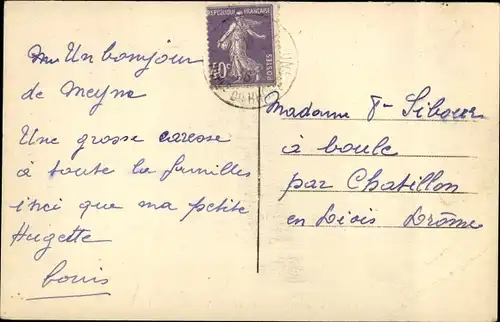 Un bonjour
de Meyne
Une grosse caresse
à toute la familles
insi que ma petite
Hugette
Louis
REPUBLIQUE FRANÇAISE
40c
POSTES
Madame
à boule
par Chatillon
en Diois Drôme